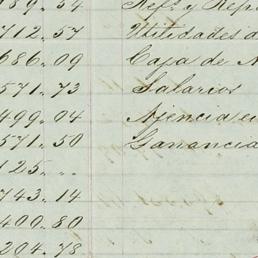 789. 54 Ref.s y Rep
712. 57 Utilidades d
686. 09 Caja de N
571. 73 Salarios
499. 04 Agencia en
571. 50 Ganancia
125. "
743. 14
409. 80
204. 78